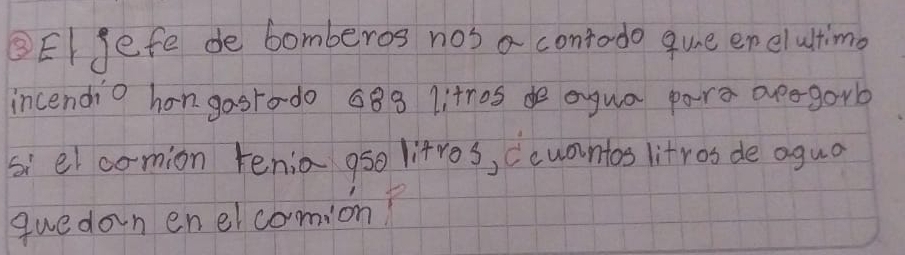 ③ El Jefe de bomberos nos a contado que en el ultimo
incendio han gastado 688 litros de agua para apagarlo
si el camion tenia 950 litros, ¿cuantos litros de agua
quedan en el camion?